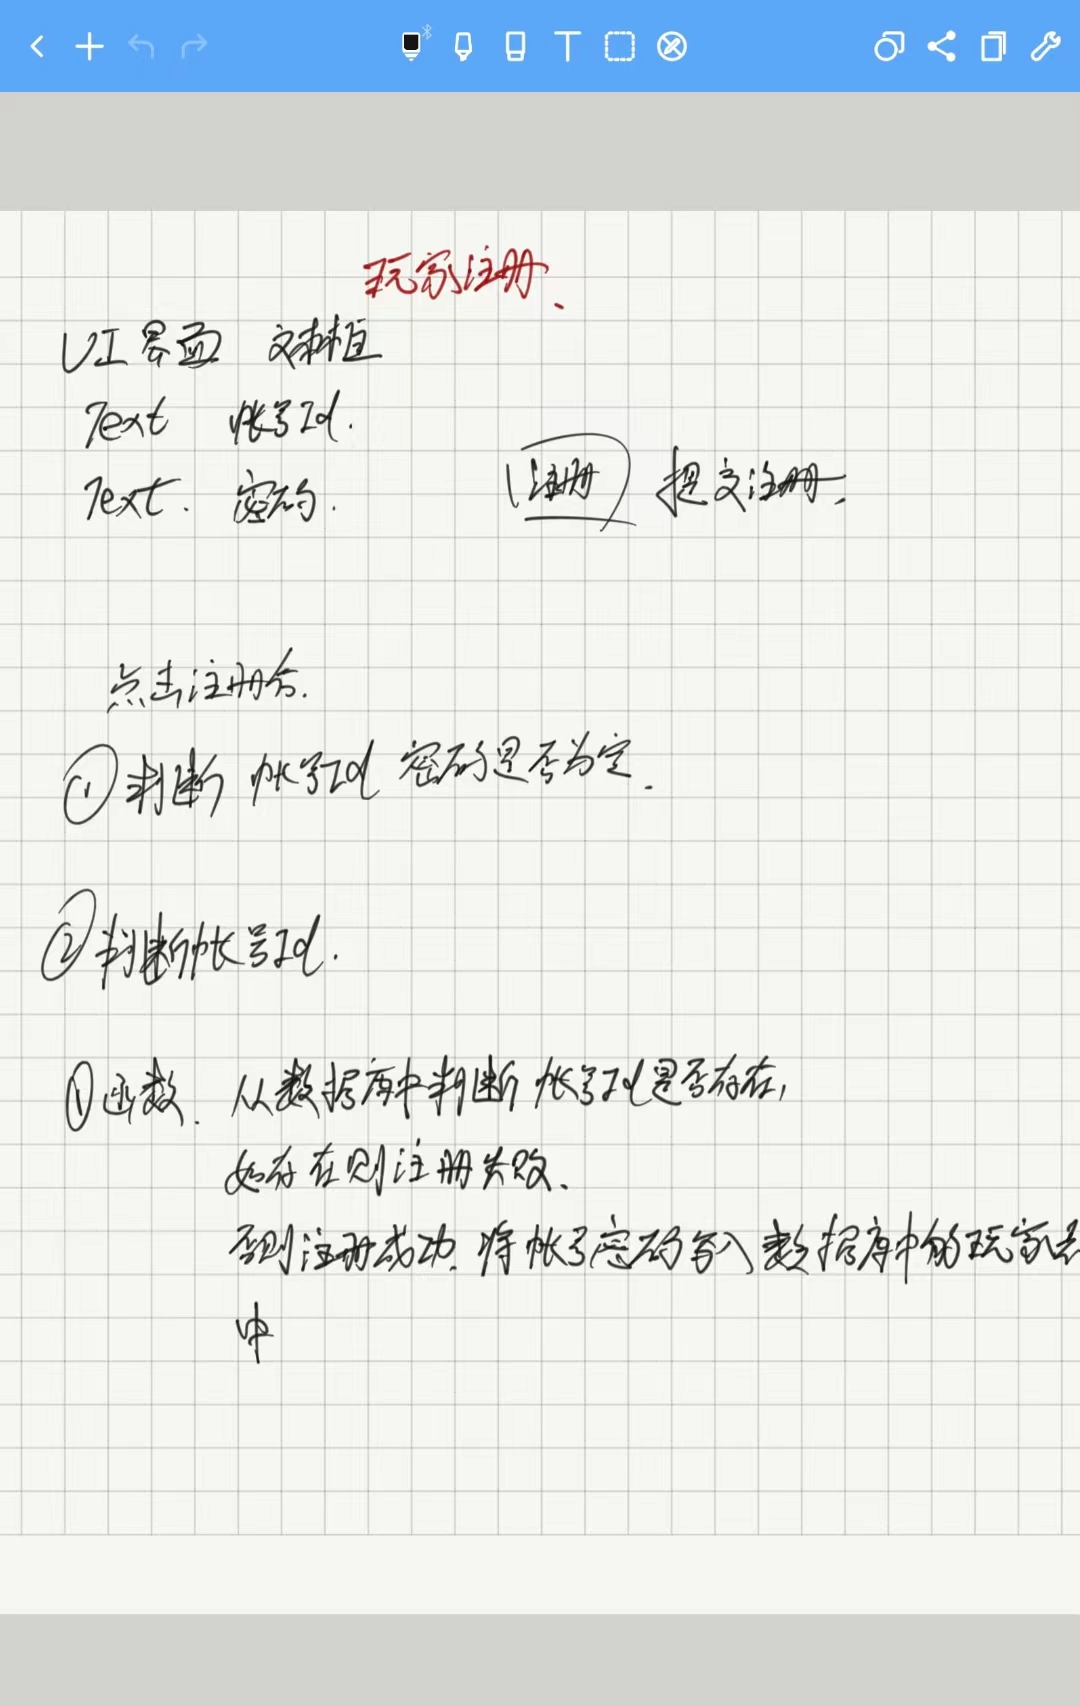 玩家注册、
UI界面 文本框
Text 帐号Id.
Text. 密码.
注册 提交注册.
点击注册后.
① 判断 帐号Id 密码是否为空.
② 判断帐号Id.
① 函数. 从数据库中判断 帐号Id是否存在,
如存在则注册失败、
否则注册成功. 将帐号密码写入数据库中的玩家表
中
T